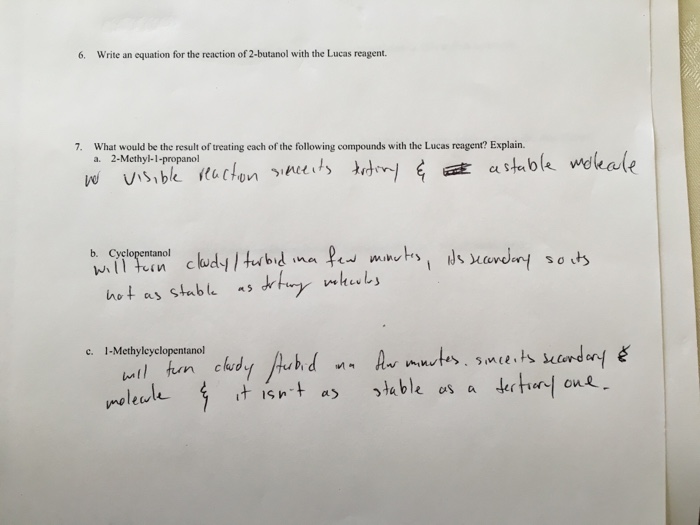 6. Write an equation for the reaction of 2-butanol with the Lucas reagent.
7. What would be the result of treating each of the following compounds with the Lucas reagent? Explain.
a. 2-Methyl-1-propanol
visible reaction since its & a stable molecule
b. Cyclopentanol
will turn cloudy / turbid in a few minutes, its secondary so its
not as stable as
c. 1-Methylcyclopentanol
will turn cloudy / turbid in a few minutes. since its secondary &
molecule & it isn't as stable as a tertiary one.